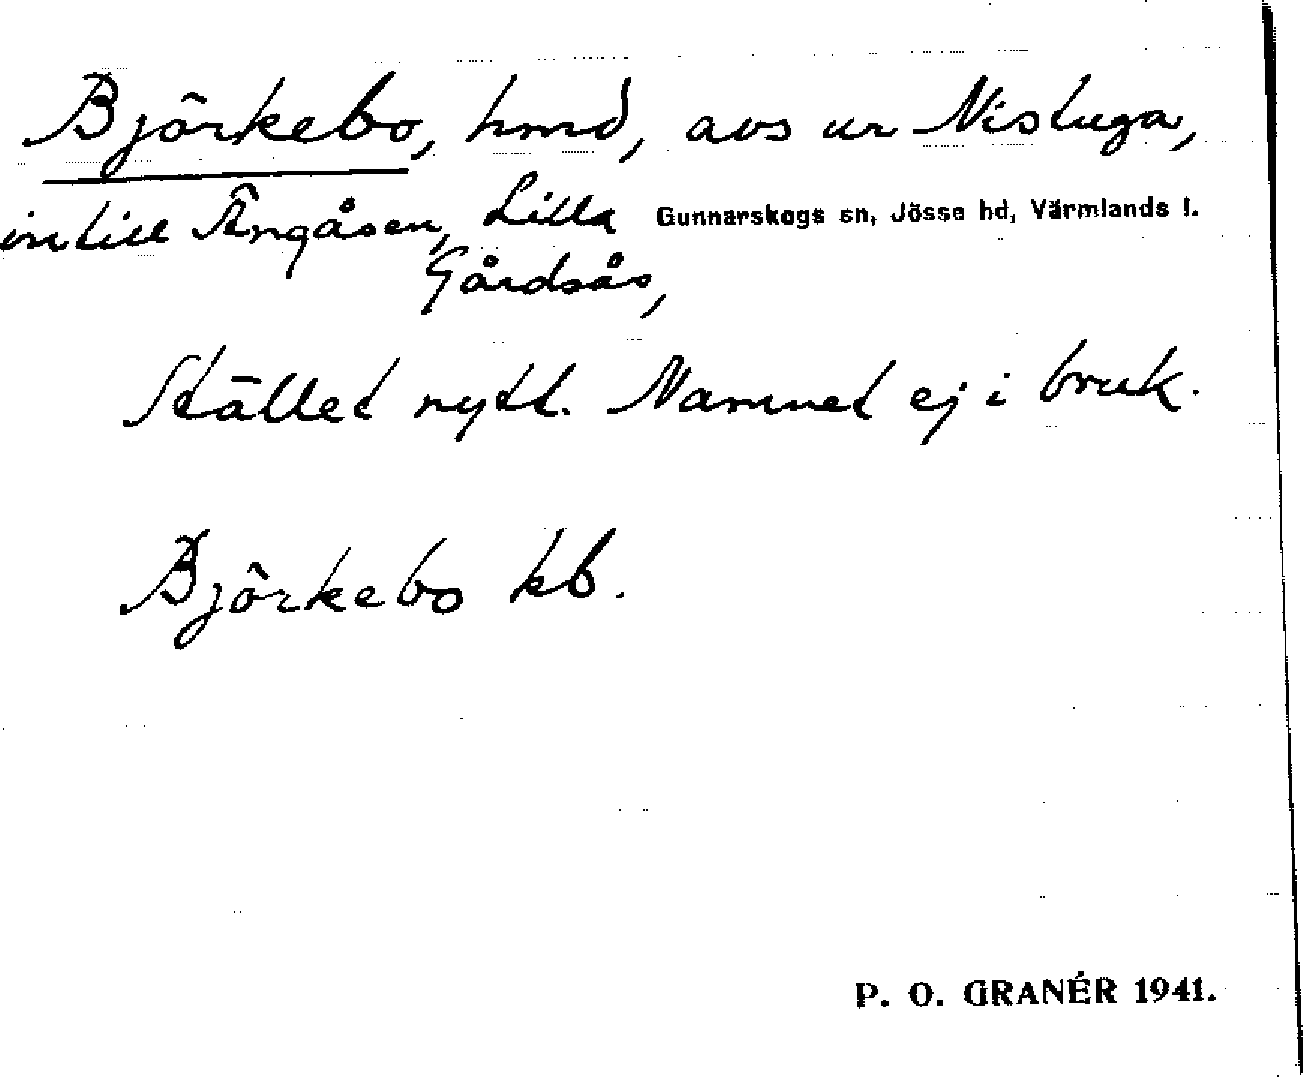 Björkebo, hmd, avs ur Nistuga,
intill Ängåsen, Lilla Gunnarskogs sn, Jösse hd, Värmlands l.
Gårdsås,
Stället nytt. Namnet ej i bruk.
Björkebo kb.
P. O. GRANÉR 1941.